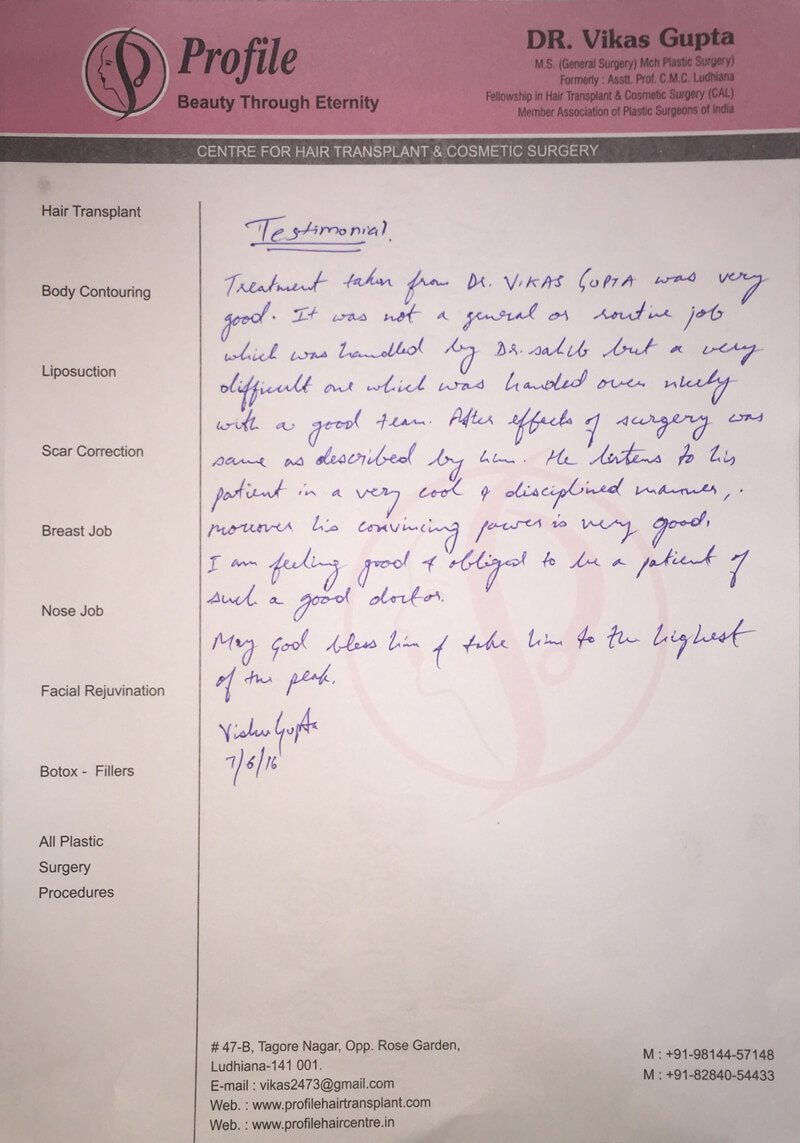 Profile
Beauty Through Eternity
DR. Vikas Gupta
M.S. (General Surgery) Mch Plastic Surgery)
Formerly : Asstt. Prof. C.M.C. Ludhiana
Fellowship in Hair Transplant & Cosmetic Surgery (CAL)
Member Association of Plastic Surgeons of India
CENTRE FOR HAIR TRANSPLANT & COSMETIC SURGERY
Hair Transplant
Body Contouring
Liposuction
Scar Correction
Breast Job
Nose Job
Facial Rejuvination
Botox - Fillers
All Plastic
Surgery
Procedures
Testimonial.
Treatment taken from Dr. VIKAS GUPTA was very
good. It was not a general or routine job
which was handled by Dr. sahib but a very
difficult one which was handed over nicely
with a good team. After effects of surgery was
same as described by him. He listens to his
patient in a very cool & disciplined manner,.
morover his convincing power is very good.
I am feeling good & obliged to be a patient of
such a good doctor.
May God bless him & take him to the highest
of the peak.
Vishu Gupta
7/6/16
# 47-B, Tagore Nagar, Opp. Rose Garden,
Ludhiana-141 001.
E-mail : vikas2473@gmail.com
Web. : www.profilehairtransplant.com
Web. : www.profilehaircentre.in
M : +91-98144-57148
M : +91-82840-54433